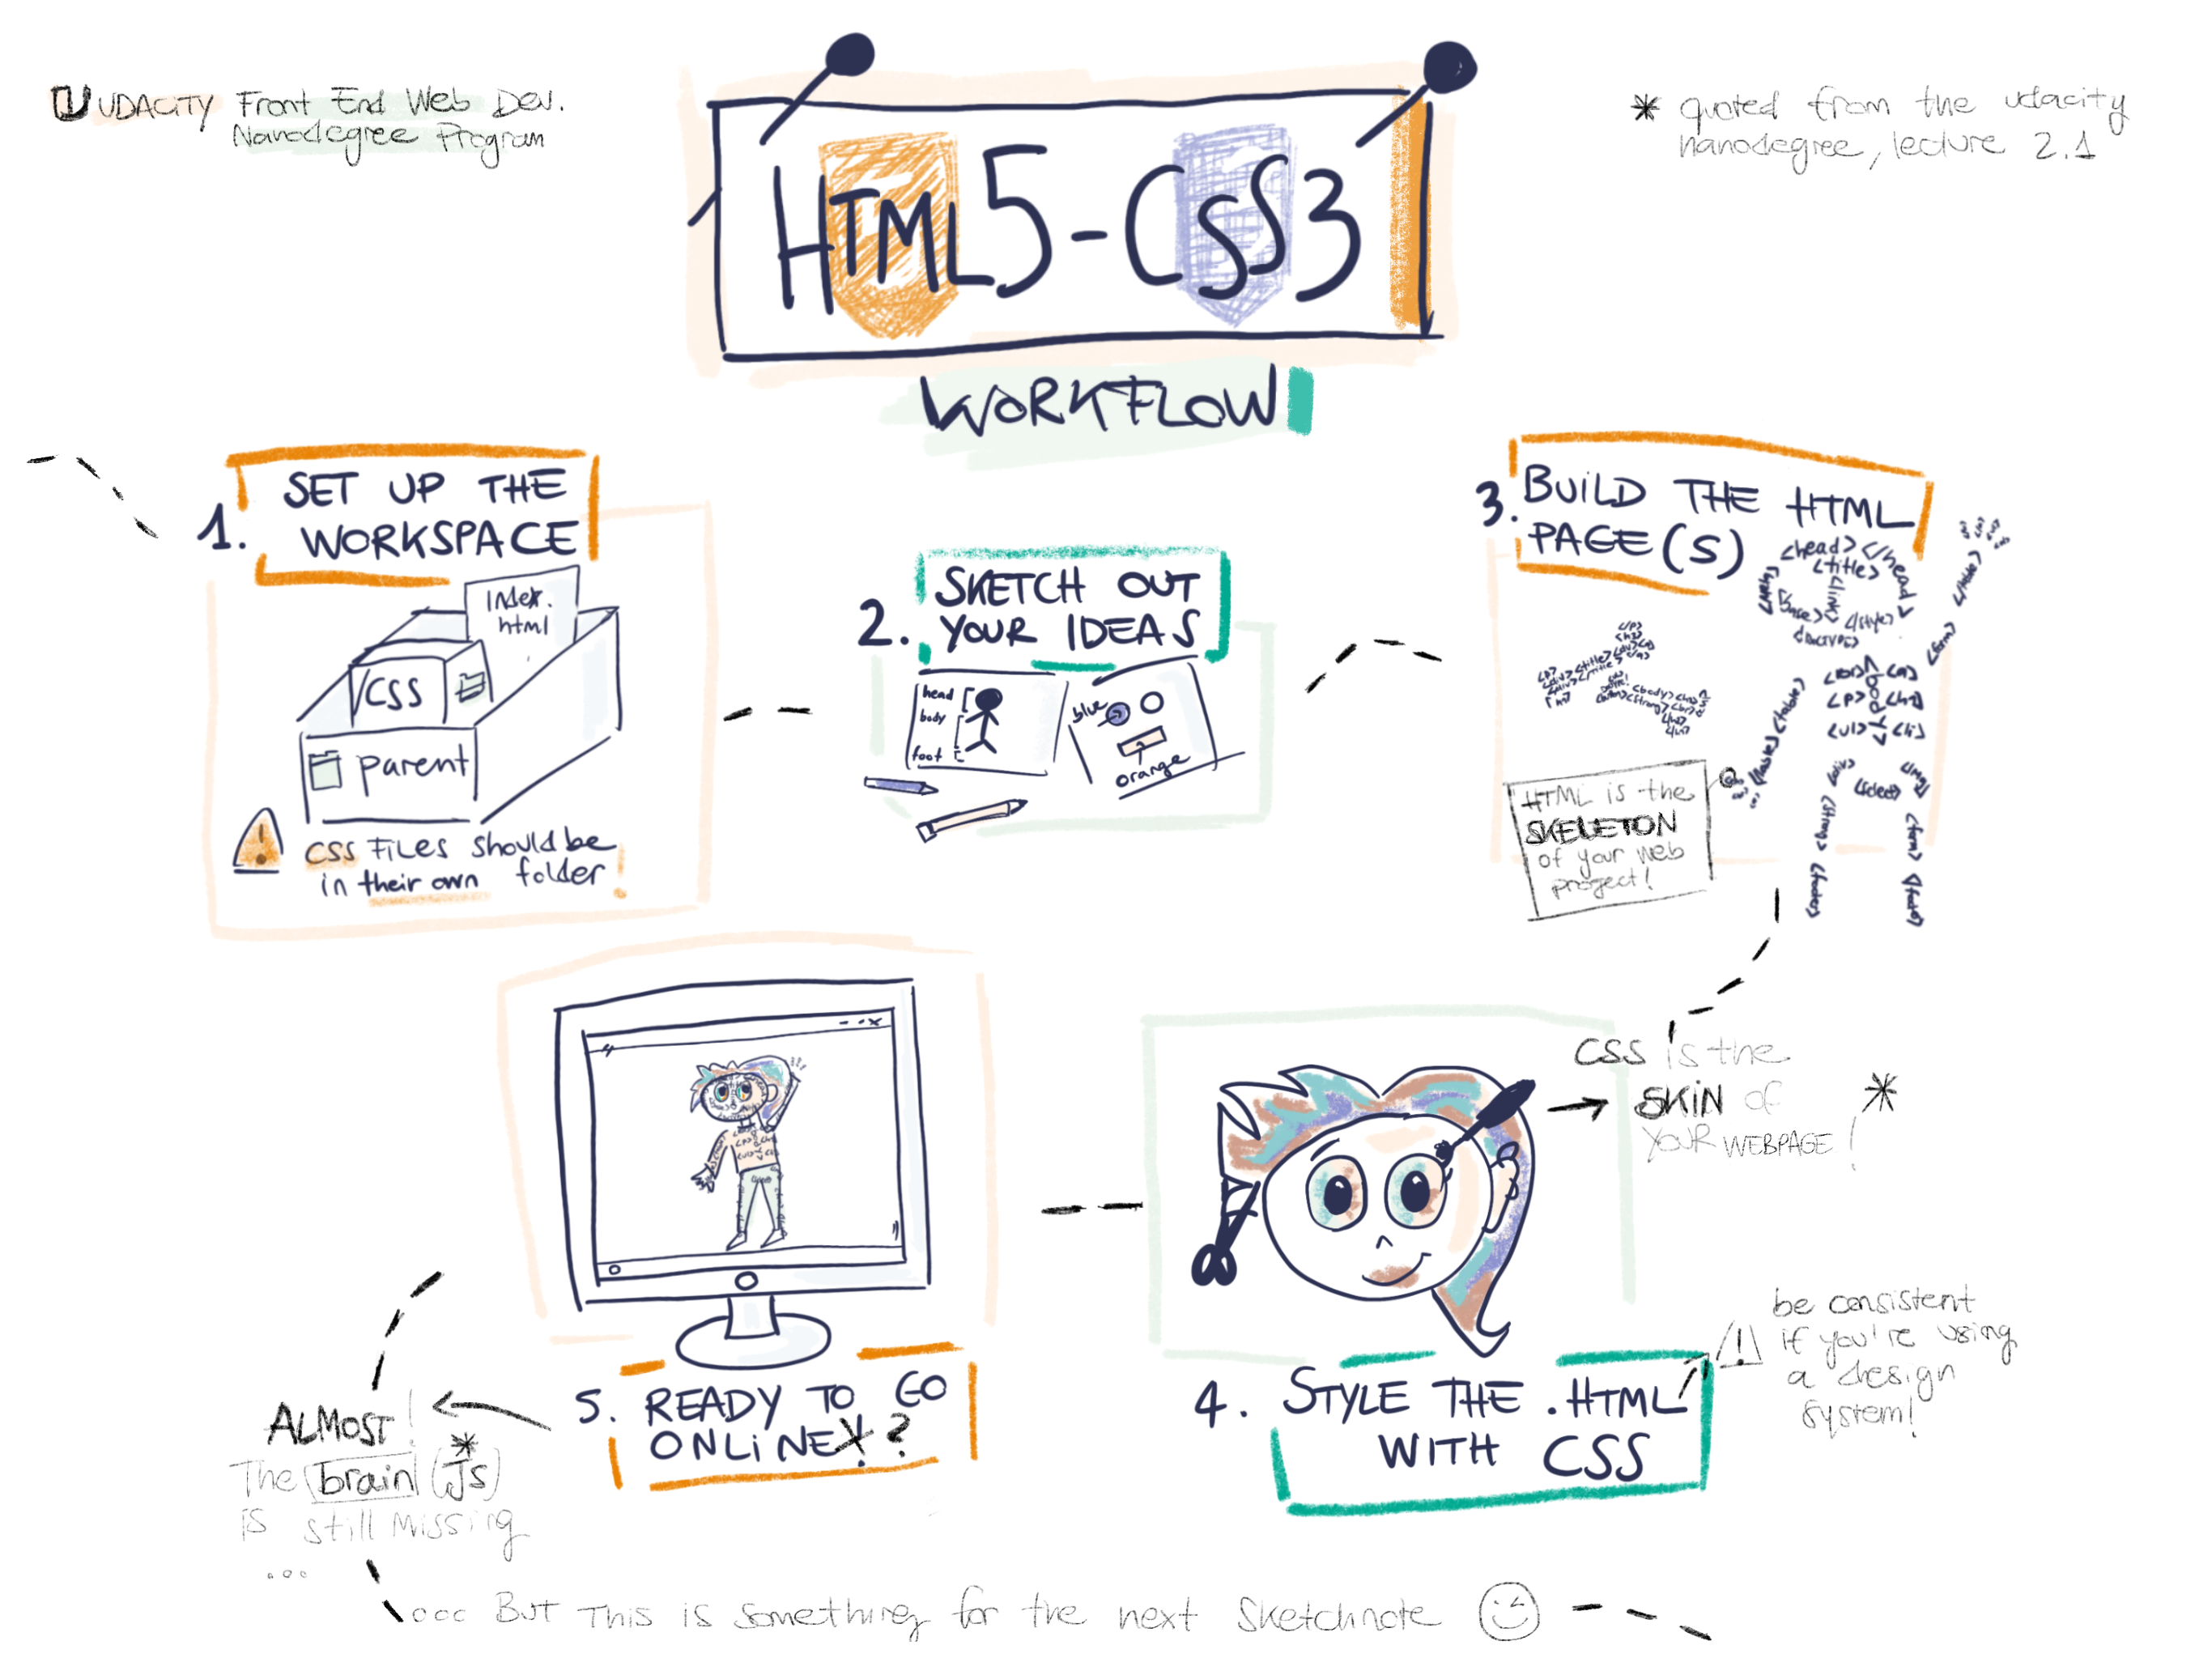 UDACITY Front End Web Dev.
Nanodegree Program
* quoted from the udacity
nanodegree, lecture 2.1
HTML5-CSS3
WORKFLOW
1. SET UP THE
WORKSPACE
Index.
html
CSS
parent
CSS FiLES should be
in their own folder!
2. SKETCH OUT
YOUR IDEAS
head
body
foot
blue
orange
3. BUiLD THE HTML
PAGE(S)
<head></head>
<title>
<link>
</style>
<body>
<p>
<ul>
</li>
<div>
<strong>
<form>
<table>
</table>
HTML is the
SKELETON
of your web
project!
CSS is the
SKiN of *
YOUR WEBPAGE!
4. STYLE THE .HTML
WITH CSS
be consistent
if you're using
a design
system!
5. READY TO GO
ONLiNE!?
ALMOST!
The brain (JS)*
is still missing
...
... BUT THis is something for the next Sketchnote